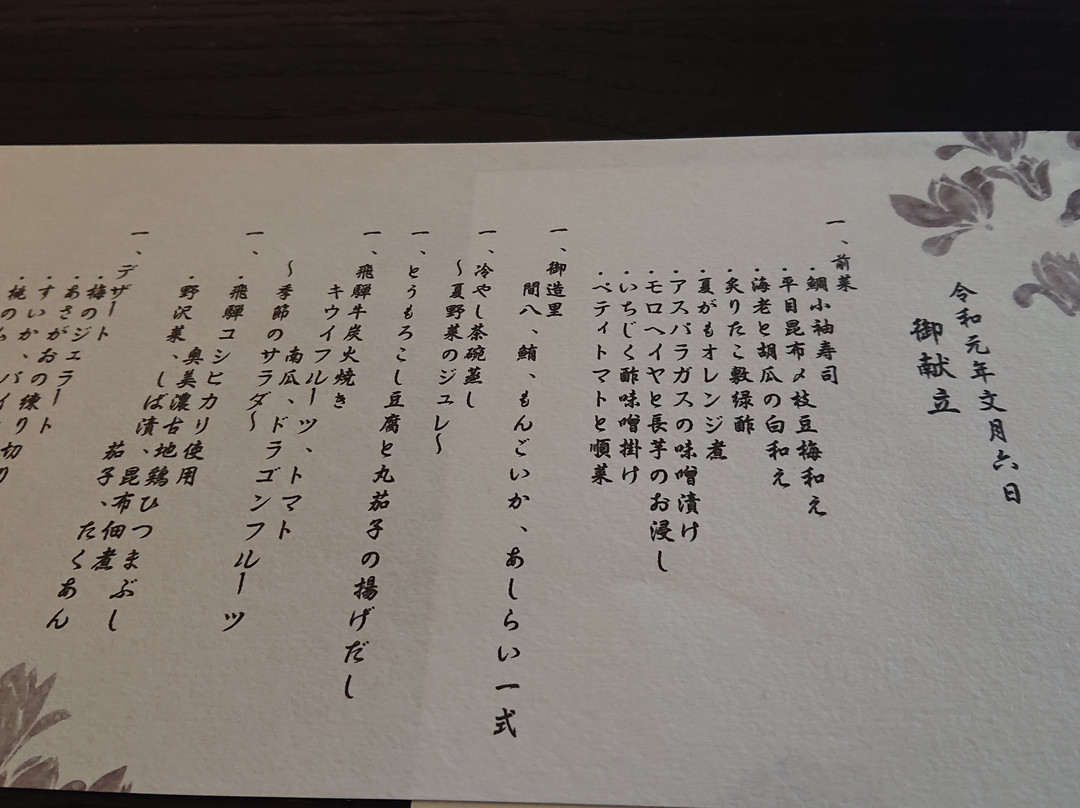 令和元年文月六日
御献立
一、前菜
・鯛小袖寿司
・平目昆布〆枝豆梅和え
・海老と胡瓜の白和え
・炙りたこ敷緑酢
・夏がもオレンジ煮
・アスパラガスの味噌漬け
・モロヘイヤと長芋のお浸し
・いちじく酢味噌掛け
・ペティトマトと順菜
一、御造里
間八、鮪、もんごいか、あしらい一式
一、冷やし茶碗蒸し
〜夏野菜のジュレ〜
一、とうもろこし豆腐と丸茄子の揚げだし
一、飛騨牛炭火焼き
キウイフルーツ、トマト
南瓜、ドラゴンフルーツ
〜季節のサラダ〜
一、奥美濃古地鶏ひつまぶし
・飛騨コシヒカリ使用
・野沢菜、しば漬、昆布佃煮
茄子、たくあん
一、デザート
・梅のジェラート
・あさがおの練
・すいか、